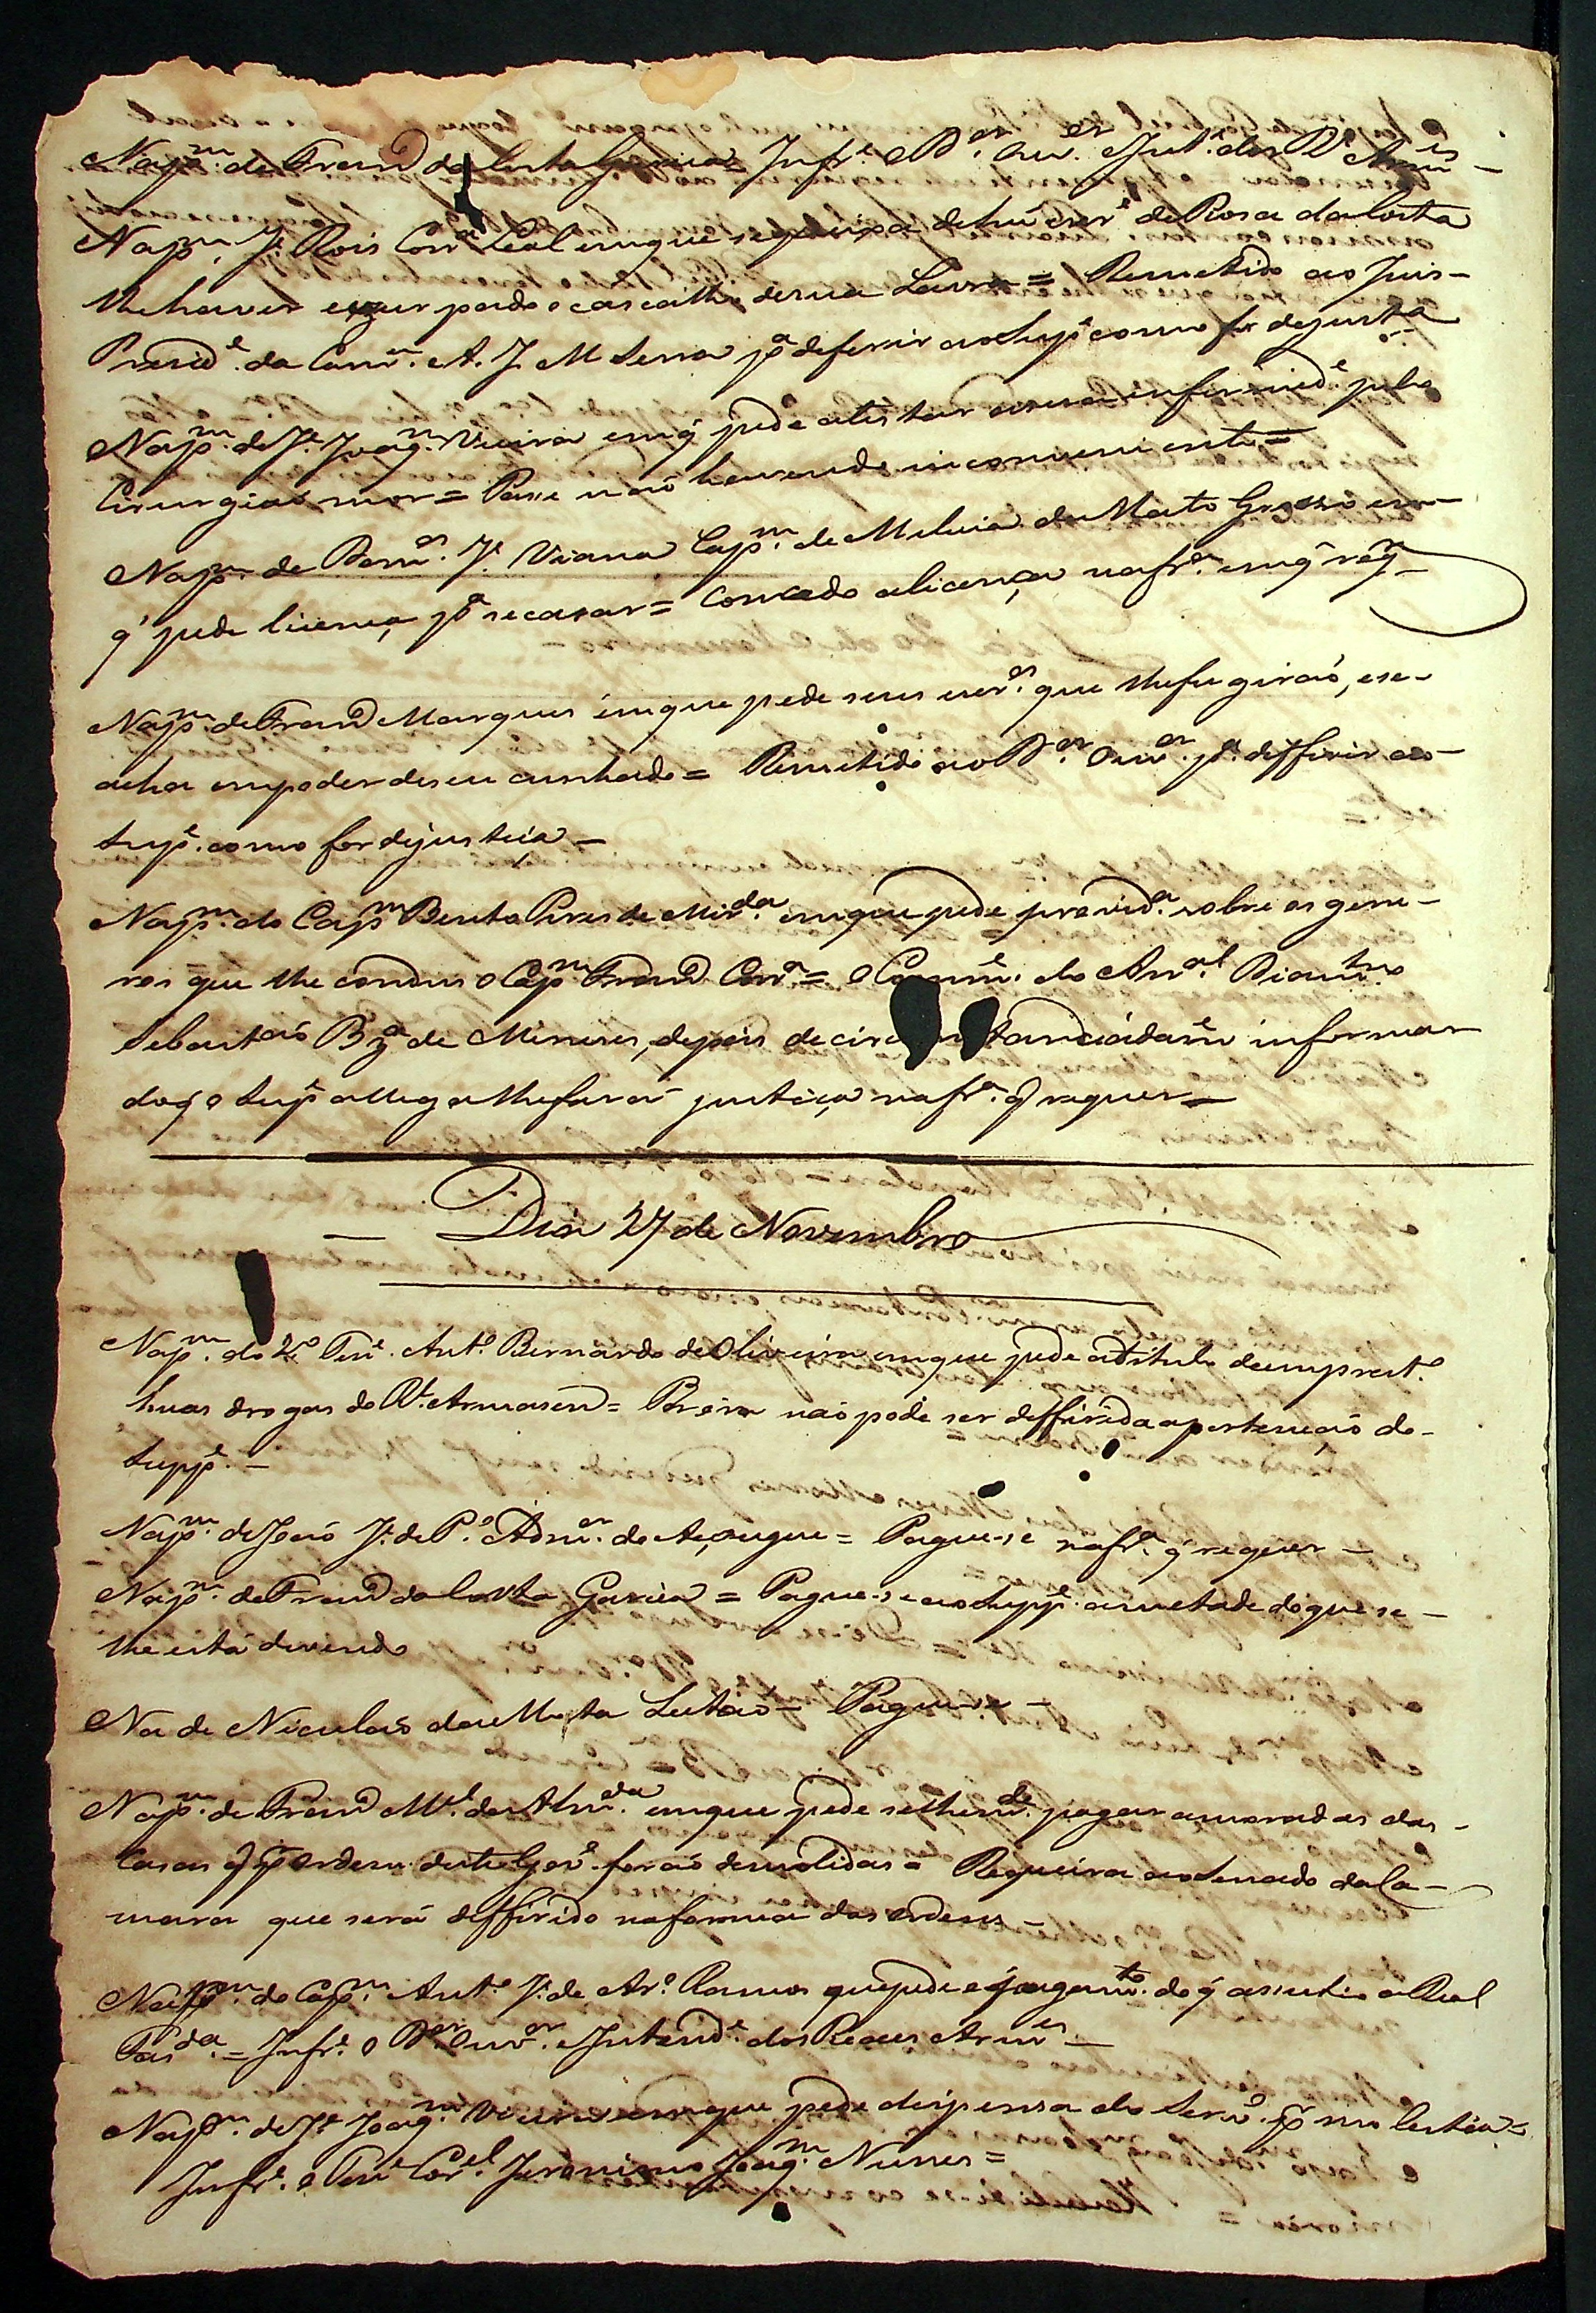 Na p.m de Fran.co da Costa Garcia = Inf.e o D.or Ouv.or e Int.e dos R.s Arm.es —
Na p.m J.e Roiz Corr.a Leal em que se queixa de hú escr.o de Rosa da Costa
lhe haver ezurpado o cascalho de sua Lavra = Remetido ao Juis —
Presid.e da Cam.ra A. J. M Serra p.a deferir ao Sup.e como for de justa
Na p.m de J.e Joaq.m Vieira em q' pede atestar a sua infermid.e pelo
Cirurgiaó mor = Passe naó havendo inconveniente =
Na p.m de Dom.os J.e Viana Cap.m de Melicia do Mato Grosso em —
q' pede licença p.a se casar = Concedo a licença na fr.a em q' req.r —
Na p.m de Fran.co Marques emque pede seus escr.os que lhe fugiraó, e se —
acha em poder de seu cunhado = Remetido ao D.or Ouv.or p.a differir ao —
Sup.e como for de justiça —
Na p.m do Cap.m Bento Pires de Mir.da emque pede provid.a sobre os gene —
ros que lhe condus o Cap.m Fran.co Corr.a = O Com.e do Arr.al Diam.tno
Sebastiaó Bz.a de Meneses, depois de circunstanciadam.e informar
do q o Sup.e allega lhe fará justiça na fr.a q requer =
— Dia 27 de Novembro
Na p.m do 2.o Ten.e Ant.o Bernardo de Oliveira emque pede a titulo de emprest.o
huas drogas do R.l Armasem = Porora naó pode ser diffirida a pertençaó do —
Supp.e —
Na p.m de Joaó J.e de P.o Adm.or do Açougue = Pague-se na fr.a q' requer —
Na p.m de Fran.co da Costa Garcia = Pague-se ao Supp.e a metade do que se —
lhe está devendo
Na de Niculao da Mota Leitaó — Pague-se —
Na p.m de Fran.co M.el de Alm.da emque pede se lhe m.de pagar a moradas das —
Casas q p ordem deste Gov.o foraó demolidas = Requeira ao Senado da Ca —
mara que será diffirido na forma das ordens —
Na p.m do Cap.m Ant.o J.e de Ar.o Ramos que pede o pagam.to do q asistio a Real
Fas.da = Inf.e o D.or Ouv.or e Intend.e dos Reaes Arm.es —
Na p.m de J.e Joaq.m Vieira emque pede dispensa do Serv.o p molestia =
Inf.e o Ten.e Cor.el Jeronimo Joaq.m Nunes =